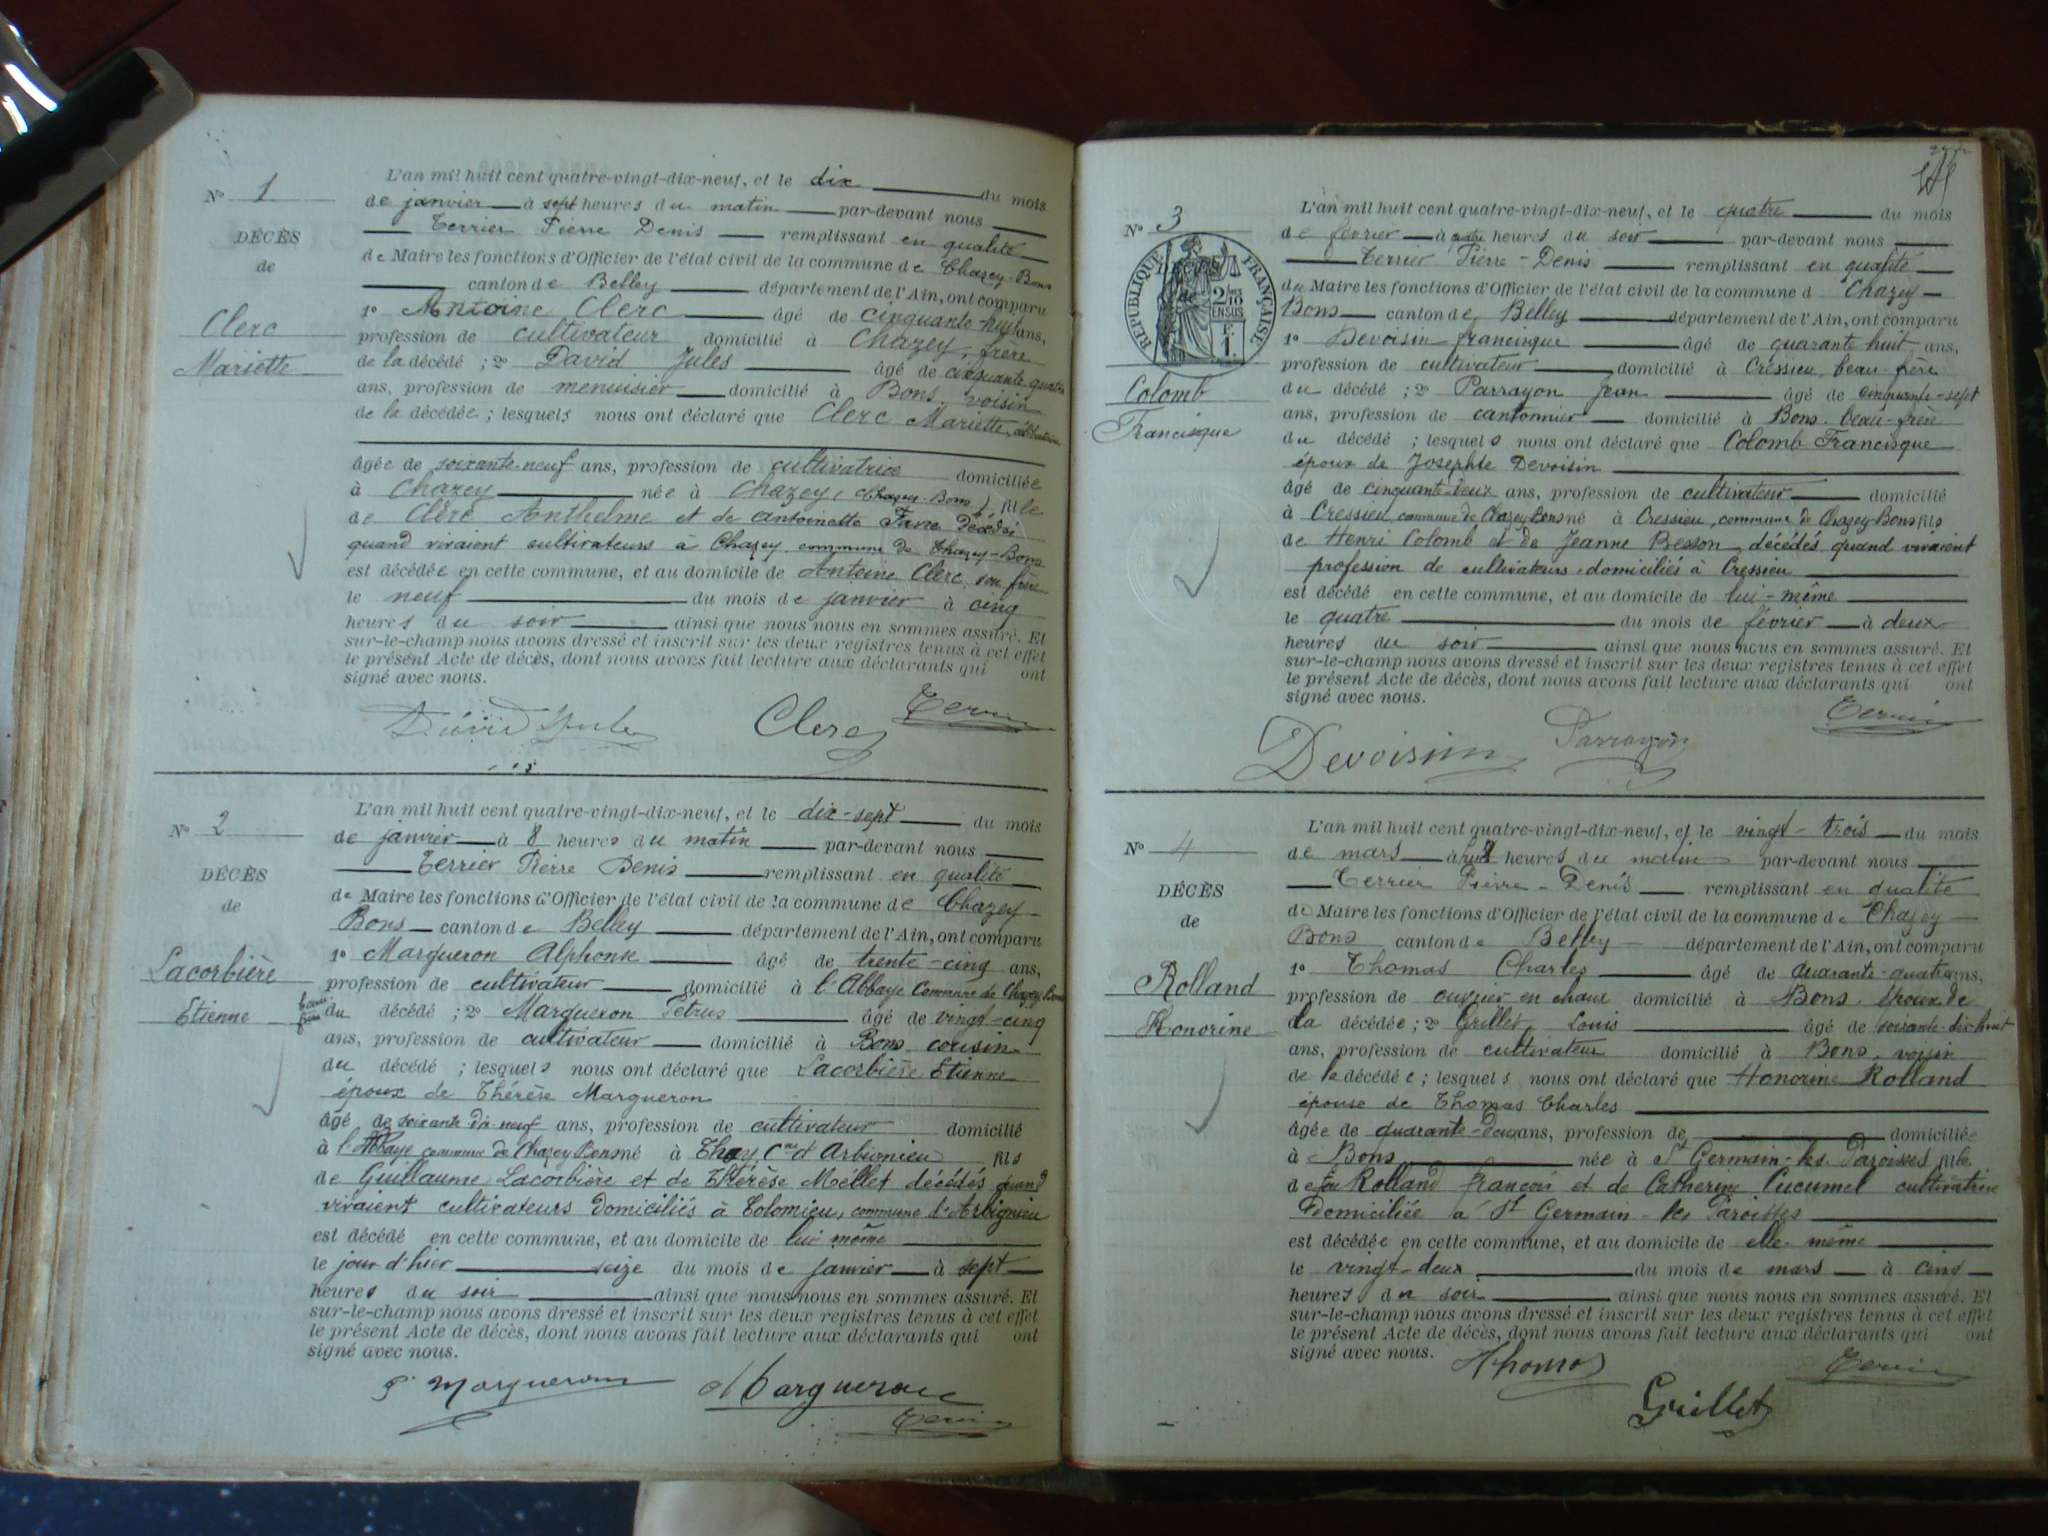 N° 1
DÉCÈS
de
Clerc
Mariette
L'an mil huit cent quatre-vingt-dix-neuf, et le dix du mois
de janvier à sept heures du matin par-devant nous
Terrier Pierre Denis remplissant en qualité
de Maire les fonctions d'Officier de l'état civil de la commune de Chazey-Bons
canton de Belley département de l'Ain, ont comparu
1° Antoine Clerc âgé de cinquante-huit ans,
profession de cultivateur domicilié à Chazey, frère
de la décédé ; 2° David Jules âgé de cinquante quatre
ans, profession de menuisier domicilié à Bons, voisin
de la décédée ; lesquels nous ont déclaré que Clerc Mariette, célibataire
âgée de soixante-neuf ans, profession de cultivatrice domiciliée
à Chazey née à Chazey, (Chazey-Bons) fille
de Clerc Anthelme et de Antoinette Favre décédés
quand vivaient cultivateurs à Chazey, commune de Chazey-Bons
est décédée en cette commune, et au domicile de Antoine Clerc, son frère
le neuf du mois de janvier à cinq
heures du soir ainsi que nous nous en sommes assuré. Et
sur-le-champ nous avons dressé et inscrit sur les deux registres tenus à cet effet
le présent Acte de décès, dont nous avons fait lecture aux déclarants qui ont
signé avec nous.
David Jules Clerc Terrier
N° 2
DÉCÈS
de
Lacorbière
Etienne
L'an mil huit cent quatre-vingt-dix-neuf, et le dix-sept du mois
de janvier à 8 heures du matin par-devant nous
Terrier Pierre Denis remplissant en qualité
de Maire les fonctions d'Officier de l'état civil de la commune de Chazey-
Bons canton de Belley département de l'Ain, ont comparu
1° Margueron Alphonse âgé de trente-cinq ans,
profession de cultivateur domicilié à l'Abbaye Commune de Chazey Bons
beau-frère du décédé ; 2° Margueron Pétrus âgé de vingt-cinq
ans, profession de cultivateur domicilié à Bons cousin
du décédé ; lesquels nous ont déclaré que Lacorbière Etienne
époux de Thérèse Margueron
âgé de soixante dix-neuf ans, profession de cultivateur domicilié
à l'Abbaye commune de Chazey Bons né à Thoy, Cne d'Arbignieu fils
de Guillaume Lacorbière et de Thérèse Mellet décédés quand
vivaient cultivateurs domiciliés à Colomieu, commune d'Arbignieu
est décédé en cette commune, et au domicile de lui même
le jour d'hier seize du mois de janvier à sept
heures du soir ainsi que nous nous en sommes assuré. Et
sur-le-champ nous avons dressé et inscrit sur les deux registres tenus à cet effet
le présent Acte de décès, dont nous avons fait lecture aux déclarants qui ont
signé avec nous.
P. Margueron Margueron
Terrier
N° 3
RÉPUBLIQUE FRANÇAISE
2/10 EN SUS
Colomb
Francisque
L'an mil huit cent quatre-vingt-dix-neuf, et le quatre du mois
de février à quatre heures du soir par-devant nous
Terrier Pierre-Denis remplissant en qualité
de Maire les fonctions d'Officier de l'état civil de la commune d Chazey-
Bons canton de Belley département de l'Ain, ont comparu
1° Devoisin francisque âgé de quarante huit ans,
profession de cultivateur domicilié à Cressieu, beau-frère
du décédé ; 2° Parrayon Jean âgé de cinquante-sept
ans, profession de cantonnier domicilié à Bons, beau-frère
du décédé ; lesquels nous ont déclaré que Colomb Francisque
époux de Josephte Devoisin
âgé de cinquante-deux ans, profession de cultivateur domicilié
à Cressieu, commune de Chazey-Bons né à Cressieu, commune de Chazey-Bons fils
de Henri Colomb et de Jeanne Besson, décédés quand vivaient
profession de cultivateurs domiciliés à Cressieu
est décédé en cette commune, et au domicile de lui-même
le quatre du mois de février à deux
heures du soir ainsi que nous nous en sommes assuré. Et
sur-le-champ nous avons dressé et inscrit sur les deux registres tenus à cet effet
le présent Acte de décès, dont nous avons fait lecture aux déclarants qui ont
signé avec nous.
Devoisin Parrayon Terrier
N° 4
DÉCÈS
de
Rolland
Honorine
L'an mil huit cent quatre-vingt-dix-neuf, et le vingt-trois du mois
de mars à huit heures du matin par-devant nous
Terrier Pierre-Denis remplissant en qualité
de Maire les fonctions d'Officier de l'état civil de la commune de Chazey-
Bons canton de Belley département de l'Ain, ont comparu
1° Thomas Charles âgé de quarante-quatre ans,
profession de ouvrier en chaux domicilié à Bons, époux de
la décédée ; 2° Grillet Louis âgé de soixante-dix huit
ans, profession de cultivateur domicilié à Bons, voisin
de la décédée ; lesquels nous ont déclaré que Honorine Rolland
épouse de Thomas Charles
âgée de quarante-deux ans, profession de domiciliée
à Bons née à St Germain-les-Paroisses fille
de feu Rolland françois et de Catherine Cucumel cultivatrice
domiciliée à St Germain-les Paroisses
est décédée en cette commune, et au domicile de elle-même
le vingt-deux du mois de mars à cinq
heures du soir ainsi que nous nous en sommes assuré. Et
sur-le-champ nous avons dressé et inscrit sur les deux registres tenus à cet effet
le présent Acte de décès, dont nous avons fait lecture aux déclarants qui ont
signé avec nous.
Thomas Terrier
Grillet